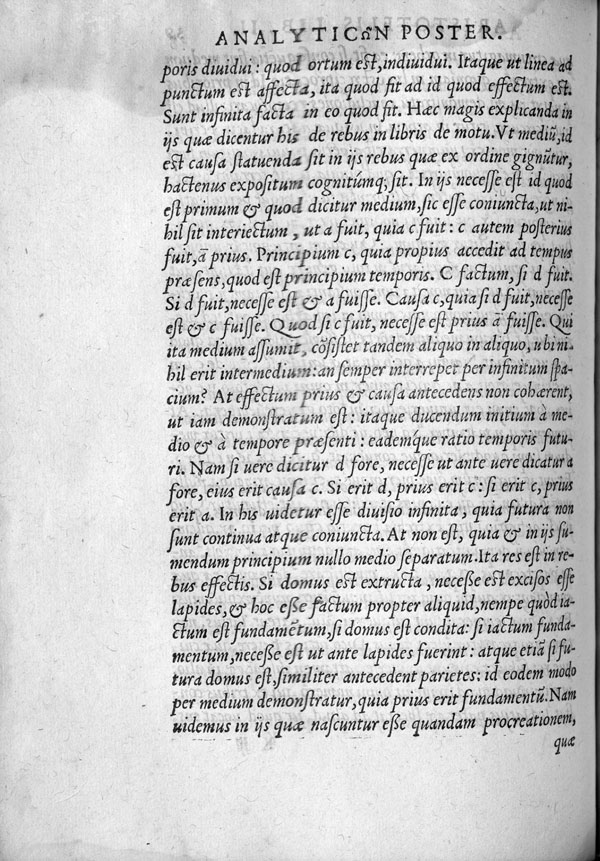 ANALYTICῶN POSTER.
poris diuidui: quod ortum est, indiuidui. Itaque ut linea ad
punctum est affecta, ita quod fit ad id quod effectum est.
Sunt infinita facta in eo quod fit. Hæc magis explicanda in
ijs quæ dicentur his de rebus in libris de motu. Vt mediũ, id
est causa statuenda sit in ijs rebus quæ ex ordine gignũtur,
hactenus expositum cognitúmq; sit. In ijs necesse est id quod
est primum & quod dicitur medium, sic esse coniuncta, ut ni-
hil sit interiectum, ut a fuit, quia c fuit: c autem posterius
fuit, ã prius. Principium c, quia propius accedit ad tempus
præsens, quod est principium temporis. C factum, si d fuit.
Si d fuit, necesse est & a fuisse. Causa c, quia si d fuit, necesse
est & c fuisse. Quod si c fuit, necesse est prius ã fuisse. Qui
ita medium assumit, cõsistet tandem aliquo in aliquo, ubi ni-
hil erit intermedium: an semper interrepet per infinitum spa-
cium? At effectum prius & causa antecedens non cohærent,
ut iam demonstratum est: itaque ducendum initium à me-
dio & à tempore præsenti: eademque ratio temporis futu-
ri. Nam si uere dicitur d fore, necesse ut ante uere dicatur a
fore, eius erit causa c. Si erit d, prius erit c: si erit c, prius
erit a. In his uidetur esse diuisio infinita, quia futura non
sunt continua atque coniuncta. At non est, quia & in ijs su-
mendum principium nullo medio separatum. Ita res est in re-
bus effectis. Si domus est extructa, necesse est excisos esse
lapides, & hoc esse factum propter aliquid, nempe quòd ia-
ctum est fundamẽtum, si domus est condita: si iactum funda-
mentum, necesse est ut ante lapides fuerint: atque etiã si fu-
tura domus est, similiter antecedent parietes: id eodem modo
per medium demonstratur, quia prius erit fundamentũ. Nam
uidemus in ijs quæ nascuntur esse quandam procreationem,
quæ